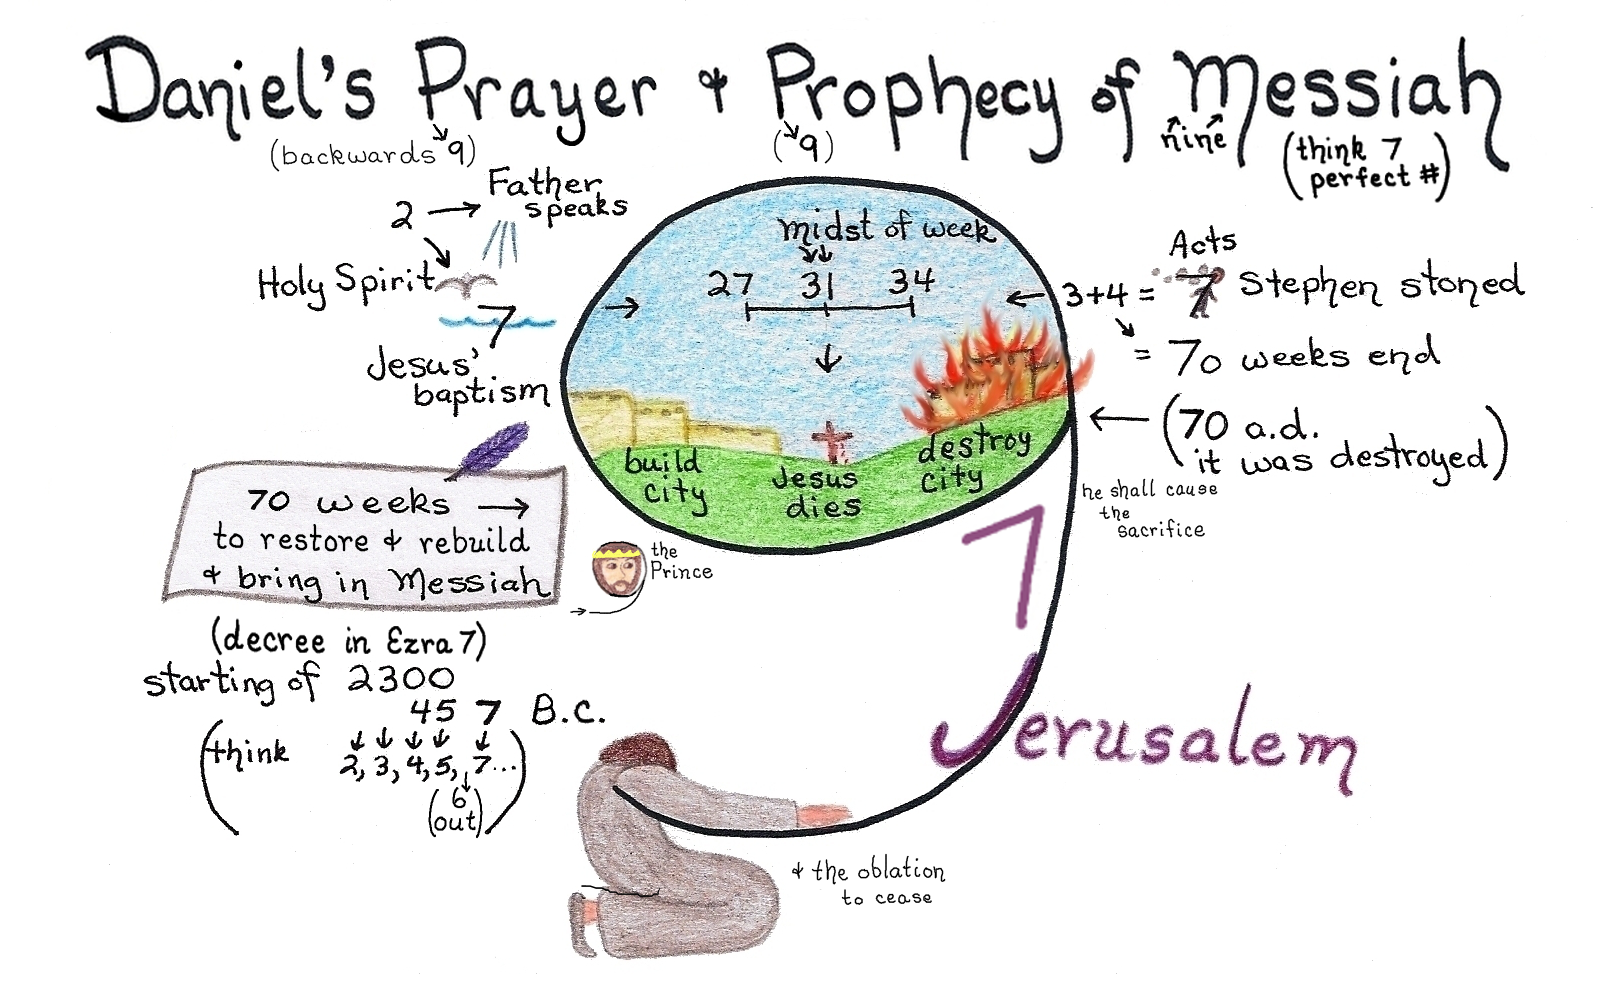 Daniel's Prayer & Prophecy of Messiah
(backwards 9)
( 9)
nine
(think 7
perfect #)
2 → Father
speaks
Holy Spirit
7
Jesus'
baptism
midst of week
27 31 34
build
city
Jesus
dies
destroy
city
Acts
3+4 = 7 Stephen stoned
= 70 weeks end
(70 a.d.
it was destroyed)
he shall cause
the
sacrifice
70 weeks →
to restore & rebuild
& bring in Messiah
the
Prince
(decree in Ezra 7)
starting of 2300
457 B.C.
(think 2, 3, 4, 5, 7...)
6
(out)
7
Jerusalem
& the oblation
to cease